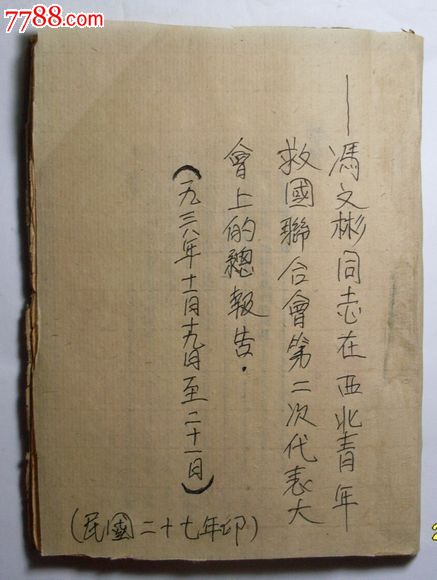 7788.com
——馮文彬同志在西北青年
救國聯合會第二次代表大
會上的總報告.
(一九三八年十一月十九日至二十一日)
(民國二十七年印)